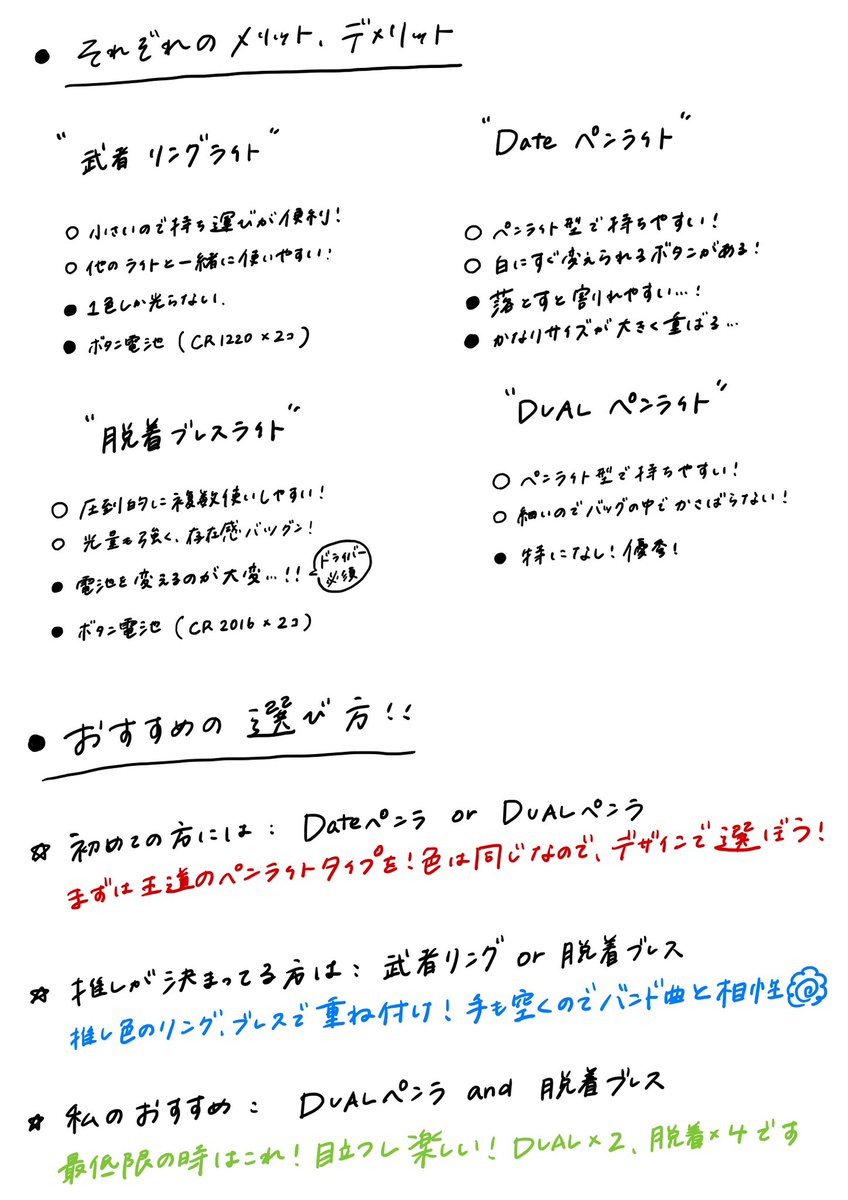 ● それぞれの メリット、デメリット
"武者 リングライト"
○ 小さいので持ち運びが便利!
○ 他のライトと一緒に使いやすい!
● 1色しか光らない.
● ボタン電池 (CR1220×2コ)
"Date ペンライト"
○ ペンライト型で持ちやすい!
○ 白にすぐ変えられるボタンがある!
● 落とすと割れやすい…!
● かなりサイズが大きく重ばる…
"脱着ブレスライト"
○ 圧倒的に複数使いしやすい!
○ 光量も強く、存在感バツグン!
● 電池を変えるのが大変…!!
ドライバー
必須
● ボタン電池 (CR2016×2コ)
"DUAL ペンライト"
○ ペンライト型で持ちやすい!
○ 細いのでバッグの中でかさばらない!
● 特になし!優秀!
● おすすめの 選び方!!
☆ 初めての方には: Dateペンラ or DUALペンラ
まずは王道のペンライトタイプを!色は同じなので、デザインで選ぼう!
☆ 推しが決まってる方は: 武者リング or 脱着ブレス
推し色のリング、ブレスで重ね付け!手も空くのでバンド曲と相性◎
☆ 私のおすすめ: DUALペンラ and 脱着ブレス
最低限の時はこれ!目立つし楽しい!DUAL×2、脱着×4です